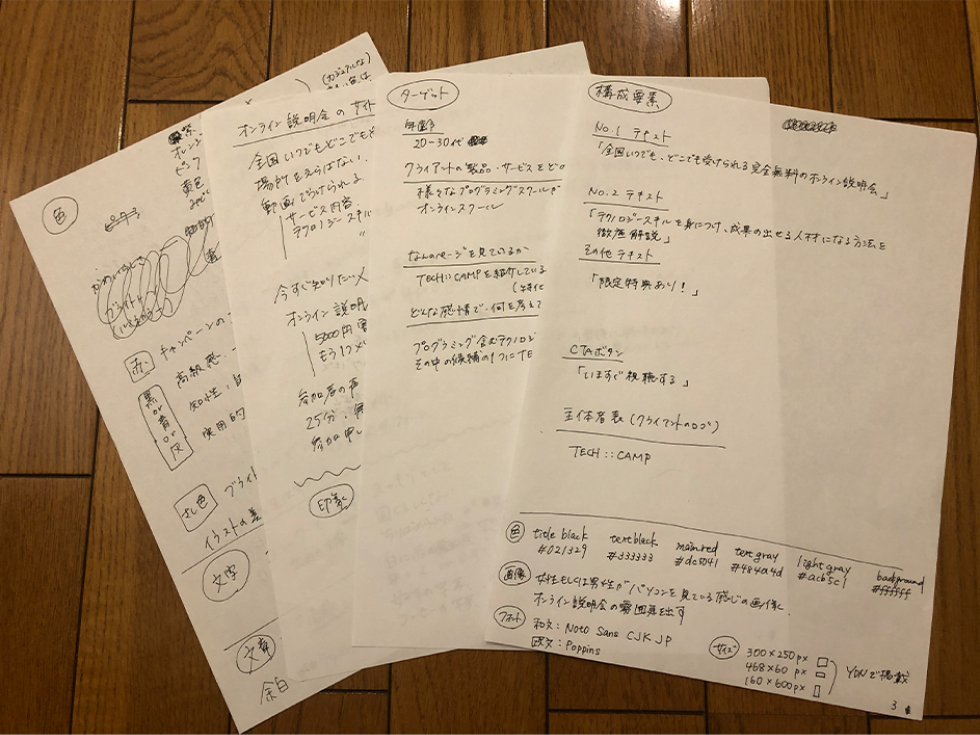 色
紫
オレンジ
ピンク
黄色
赤
キャンペーンの
高級感
黒or青or灰
知性
実用的
さし色
ブライト
イラストの
文字
文章
余白
オンライン説明会のサイト
全国いつでもどこでも
場所をえらばない.
動画でうけられる
サービス内容.
テクノロジースキル
今すぐ知りたい人
オンライン説明
5000円
もう1つ
参加者の声
25分,
参加申し
印象
ターゲット
年齢
20-30代
クライアントの製品・サービスをどの
様々なプログラミングスクールが
オンラインスクール
なんのページを見ているか
TECH::CAMPを紹介している
どんな感情で・何を考えて
プログラミング含むテクノロジ
その中の候補の1つにTE
構成要素
No.1 テキスト
「全国いつでも、どこでも受けられる完全無料のオンライン説明会」
No.2 テキスト
「テクノロジースキルを身につけ、成果の出せる人材になる方法を
徹底解説」
その他テキスト
「限定特典あり!」
CTAボタン
「いますぐ視聴する」
主体者表(クライアントのロゴ)
TECH::CAMP
色 title black text black main red text gray light gray background
#021329 #333333 #484a4d #acb5c1 #ffffff
画像 女性もしくは男性がパソコンを見ている感じの画像に.
オンライン説明会の雰囲気を出す
フォント 和文: Noto Sans CJK JP
欧文: Poppins
サイズ 300×250px
468×60px
160×600px
YDNで掲載
3